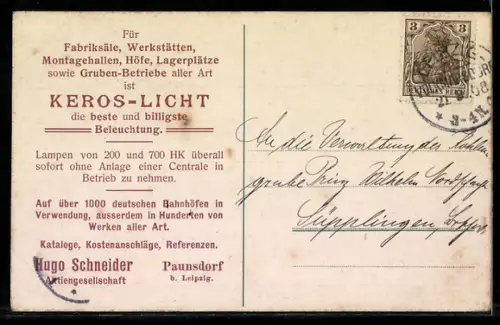 Für
Fabriksäle, Werkstätten,
Montagehallen, Höfe, Lagerplätze
sowie Gruben-Betriebe aller Art
ist
KEROS-LICHT
die beste und billigste
Beleuchtung.
Lampen von 200 und 700 HK überall
sofort ohne Anlage einer Centrale in
Betrieb zu nehmen.
Auf über 1000 deutschen Bahnhöfen in
Verwendung, ausserdem in Hunderten von
Werken aller Art.
Kataloge, Kostenanschläge, Referenzen.
Hugo Schneider Paunsdorf
Aktiengesellschaft b. Leipzig.
3 3
DEUTSCHES REICH
3-4N.
An die Verwaltung der Kohlen-
grube Prinz Wilhelm
Süpplingen